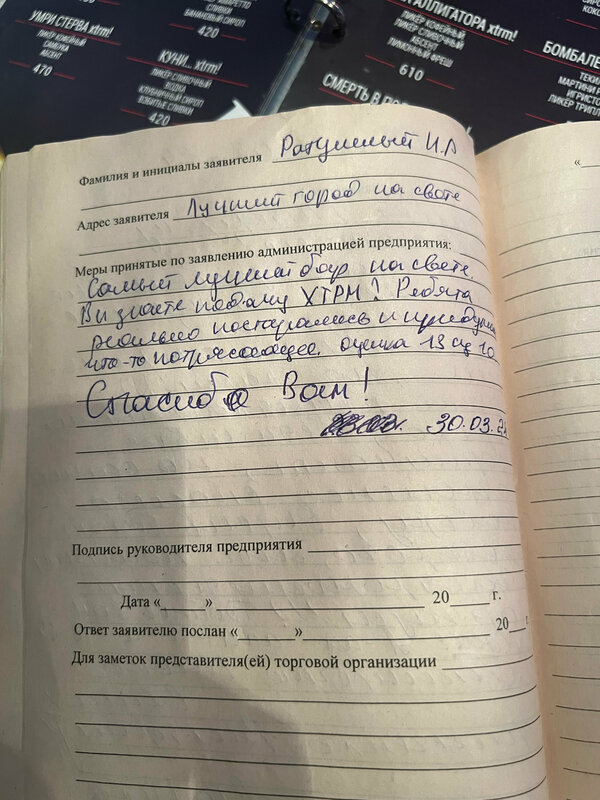 УМРИ СТЕРВА xtrm!
ЛИКЕР КОФЕЙНЫЙ
САМБУКА
АБСЕНТ
470
СЛИВКИ
БАНАНОВЫЙ СИРОП
420
КУНИ... xtrm!
ЛИКЕР СЛИВОЧНЫЙ
ВОДКА
КЛУБНИЧНЫЙ СИРОП
ВЗБИТЫЕ СЛИВКИ
420
ЛИКЕР КОФЕЙНЫЙ
ЛИКЕР СЛИВОЧНЫЙ
АБСЕНТ
ЛИМОННЫЙ ФРЕШ
610
СМЕРТЬ В
Фамилия и инициалы заявителя Ратушный И.А
Адрес заявителя Лучший город на свете
Меры принятые по заявлению администрацией предприятия:
Самый лучший бар на свете
Вы знаете почему ХТРМ! Ребята
реально постарались и придумали
что-то потрясающее. оценка 13 из 10
Спасибо Вам!
30.03.
Подпись руководителя предприятия
Дата « » 20 г.
Ответ заявителю послан « » 20
Для заметок представителя(ей) торговой организации